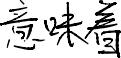 意味着